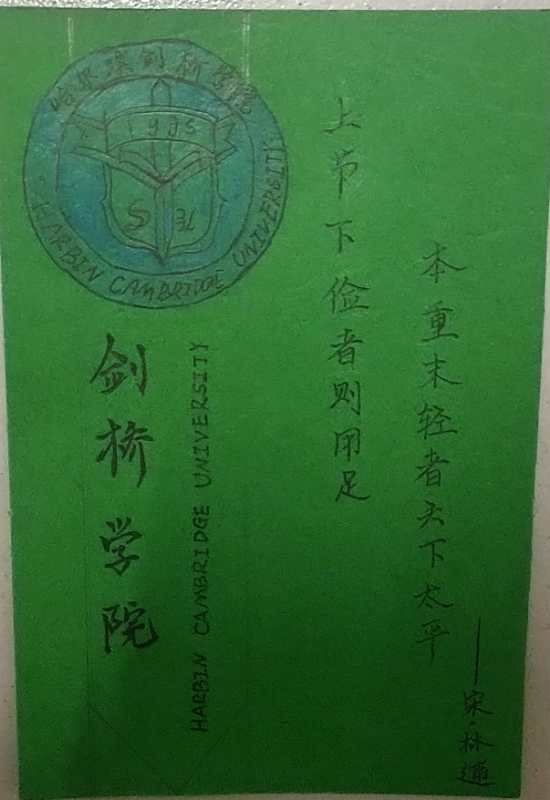 哈尔滨剑桥学院
1995
HARBIN CAMBRIDGE UNIVERSITY
剑桥学院
HARBIN CAMBRIDGE UNIVERSITY
上节下俭者则用足
本重末轻者天下太平
——宋·林逋